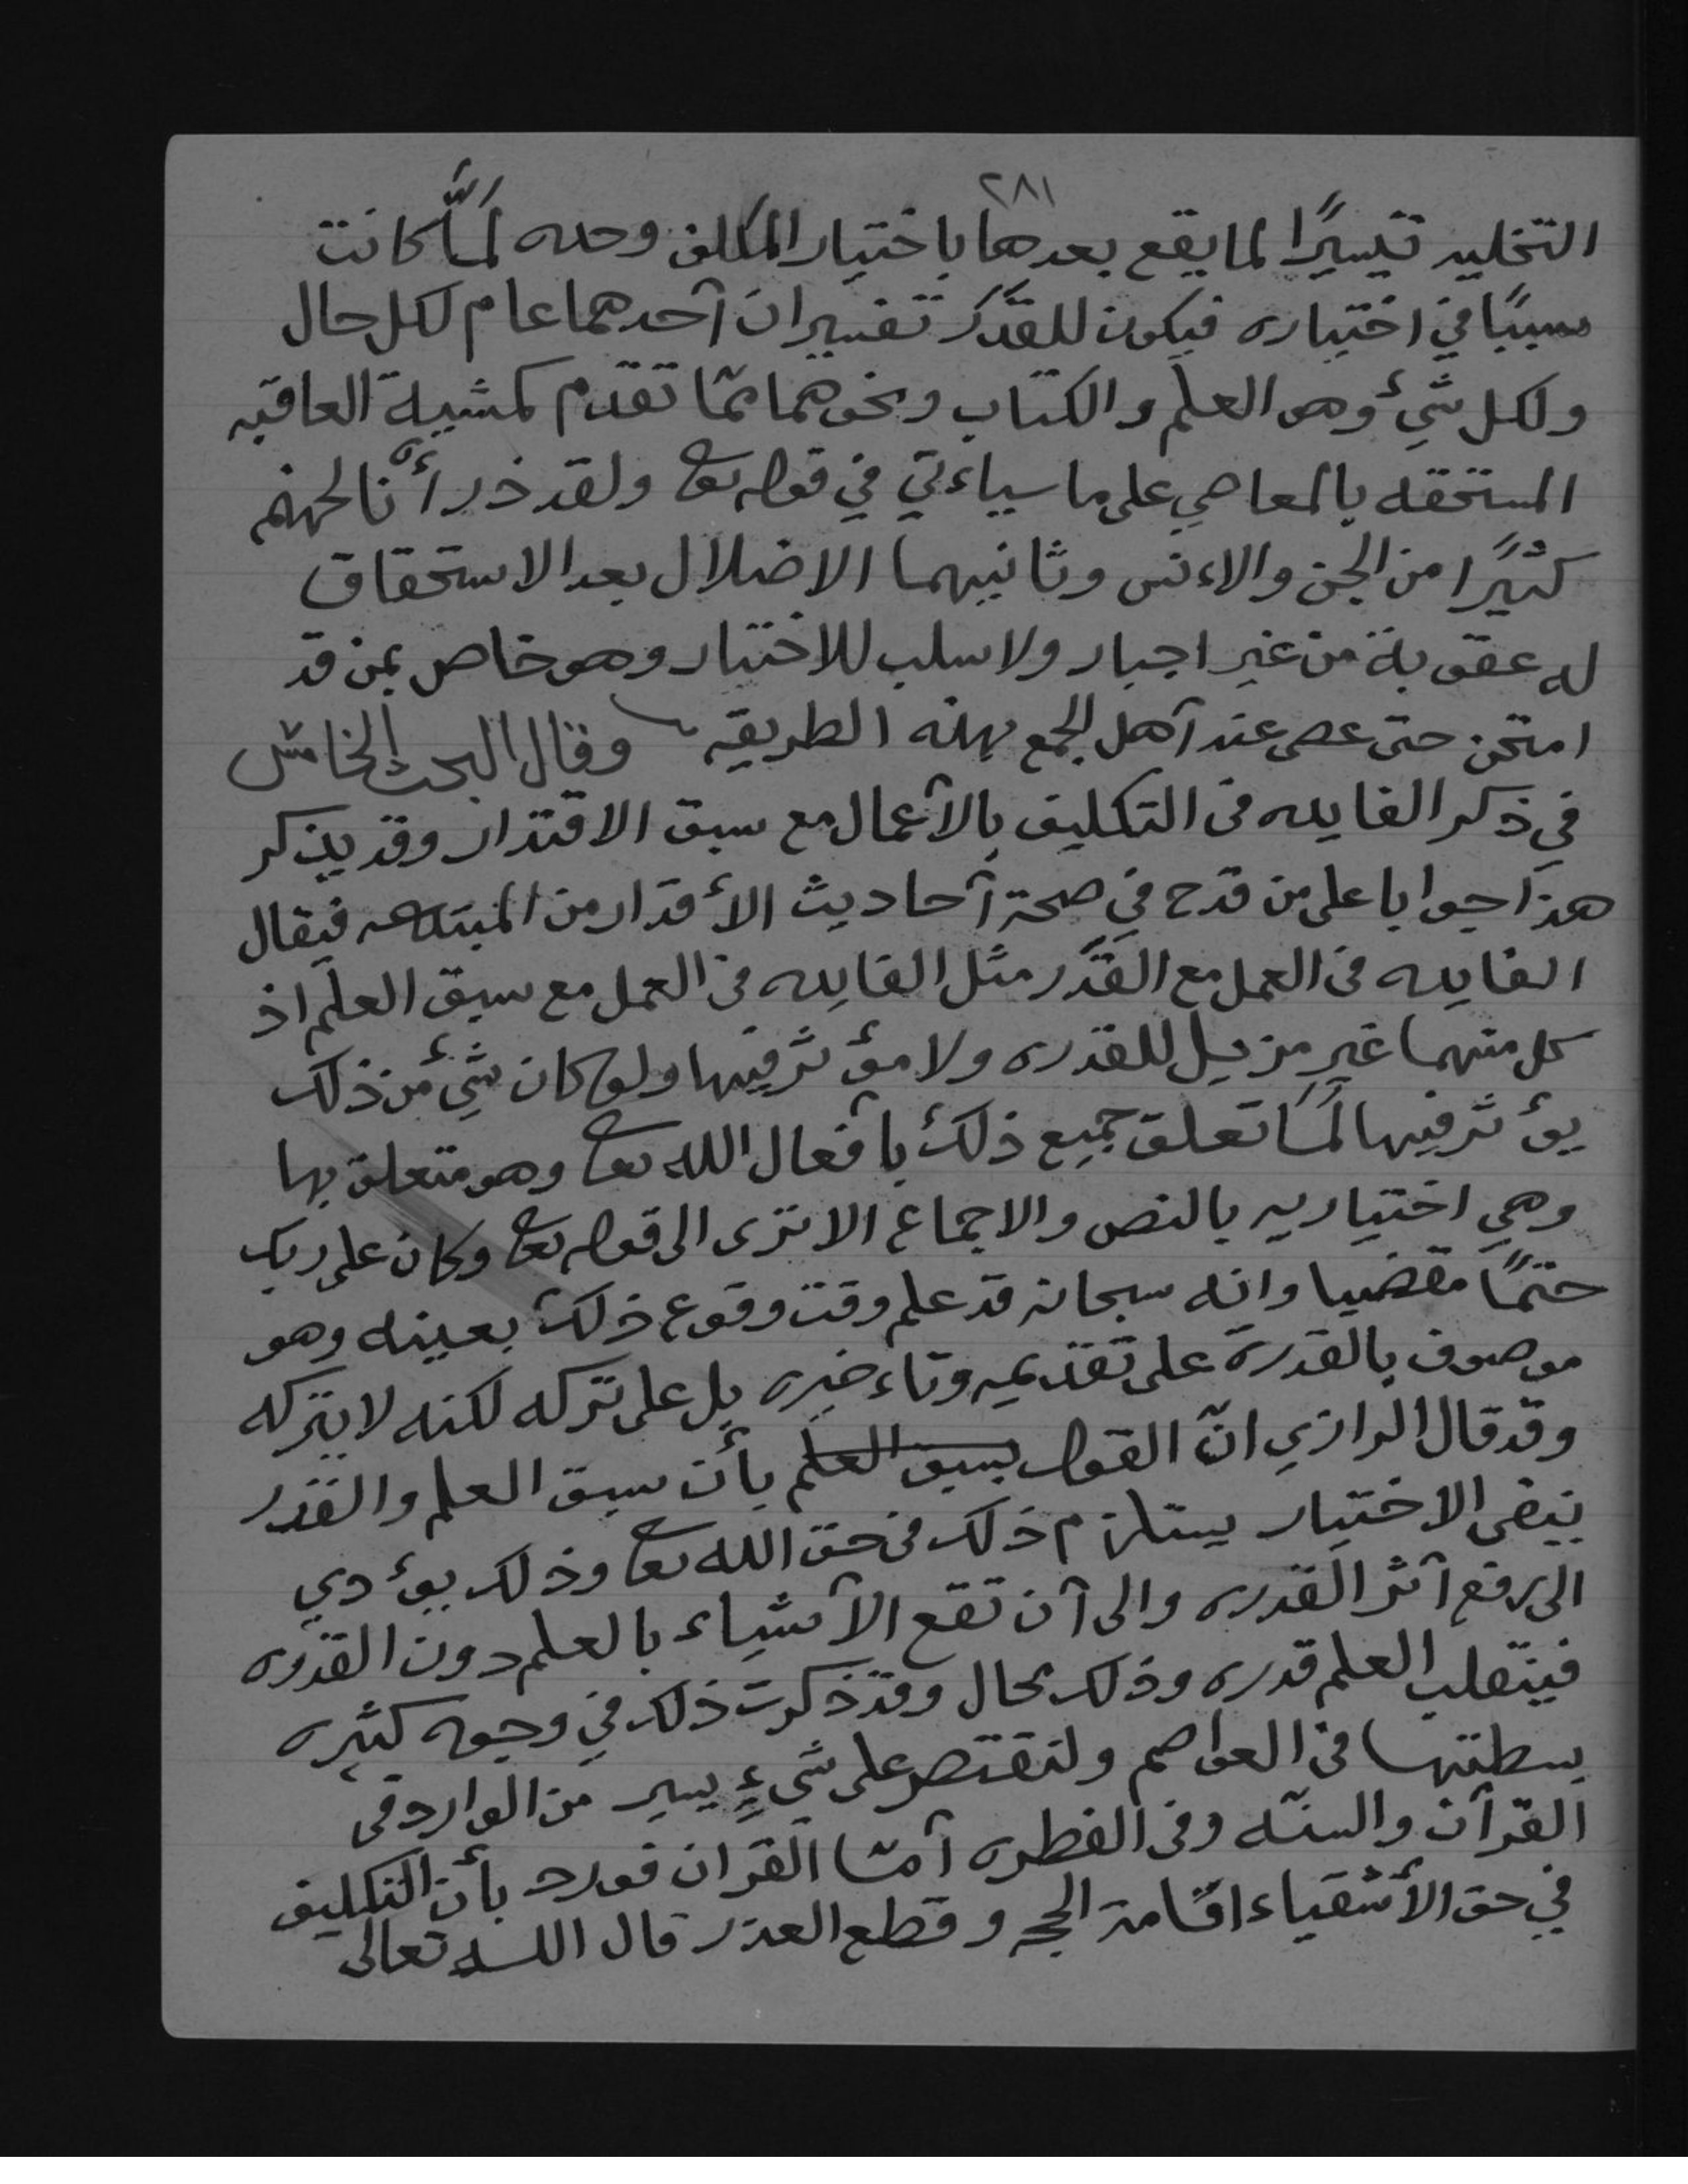 ٢٨١
التخليه تيسيرًا لما يقع بعدها باختيار المكلف وحده لَمَّا كانت
سببًا في اختياره فيكون للقَدَر تفسيران آحدهما عام لكل حال
ولكل شيءٍ وهو العلم والكتاب ونحوهما مما تقدم كمشيية العاقبه
المستحقه بالمعاصي على ما سياءتي في قوله تعا ولقد ذرأنا لجهنم
كثيرًا من الجن والاءنس وثانيهما الاضلال بعد الاستحقاق
له عقوبة من غير اجبار ولا سلب للاختيار وهو خاص بمن قد
امتحن حتى عصى عند آهل الجمع بهذه الطريقه وقال البحث الخامس
في ذكر الفايده فى التكليف بالآعمال مع سبق الاقتدار وقد يذكر
هذا جوابا على من قدح في صحة آحاديث الأقدار من المبتدعه فيقال
الفايده فى العمل مع القَدَر مثل الفايده فى العمل مع سبق العلم اذ
كل منهما غير مزيل للقدره ولا مؤثر فيها ولو كان شيءٌ من ذلك
يؤثر فيها لَمَا تعلق جميع ذلك بآفعال الله تعا وهو متعلق بها
وهي اختياريه بالنص والاجماع الا ترى الى قوله تعا وكان على ربك
حتمًا مقضيا وانه سبحانه قد علم وقت وقوع ذلك بعينه وهو
موصوف بالقدرة على تقديمه وتاءخيره بل على تركه لكنه لا يتركه
وقد قال الرازي انّ القول بسبق العلم بأن سبق العلم والقدر
ينفى الاختيار يستلزم ذلك فى حق الله تعا وذلك يوءدي
الى رفع آثر القدره والى آن تقع الآشياء بالعلم دون القدره
فينقلب العلم قدره وذلك محال وقد ذكرت ذلك في وجوه كثيره
بسطتها فى العواصم ولنقتصر على شيءٍ يسير من الوارد فى
القرآن والسنّه وفى الفطره آمّا القرآن فورد بأن التكليف
في حق الأشقياء اقامة الحجه وقطع العذر قال الله تعالى